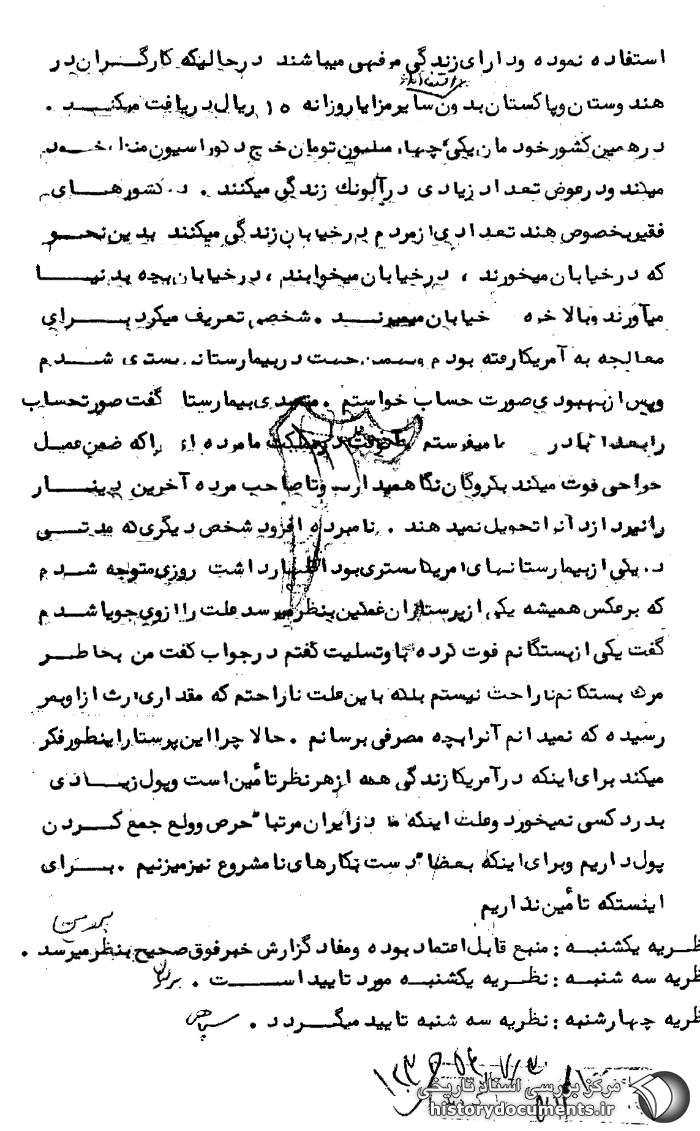 استفاده نموده ودارای زندگی مرفهی میباشند درحالیکه کارگران در
هندوستان وپاکستان بدون سایر مزایا روزانه ۱۵ ریال دریافت میکنند .
درهمین کشور خودمان یکی چهار ملیون تومان خرج دکوراسیون منزل خود
میکند ودرعوض تعداد زیادی درآلونك زندگی میکنند . در کشورهای
فقیر بخصوص هند تعدادی از مردم در خیابان زندگی میکنند بدین نحو
که در خیابان میخورند ، در خیابان میخوابند ، در خیابان بچه بدنیا
میآورند وبالاخره خیابان میمیرند . شخصی تعریف میکرد برای
معالجه به آمریکا رفته بودم در بیمارستان بستری شدم
وپس از بهبودی صورت حساب خواستم . متصدی بیمارستا گفت صورتحساب
را بعدا میفرستم مملکت ما مرده ای راکه ضمن عمل
جراحی فوت میکند بگروگان نگاهمیدارند وتا صاحب مرده آخرین دینار
را نپردازد آنرا تحویل نمیدهند . نامبرده افزود شخص دیگری که مدتی
در یکی از بیمارستانهای امریکا بستری بود اظهار داشت روزی متوجه شدم
که برعکس همیشه یکی از پرستاران غمگین بنظر میرسد علت را ازوی جویا شدم
گفت یکی از بستگانم فوت کرده باوتسلیت گفتم درجواب گفت من بخاطر
مرگ بستگانم ناراحت نیستم بلکه باین علت ناراحتم که مقداری ارث ازاوبمن
رسیده که نمیدانم آنرا بچه مصرفی برسانم . حالا چرا این پرستار اینطور فکر
میکند برای اینکه در آمریکا زندگی همه ازهر نظر تأمین است وپول زیادی
بدرد کسی نمیخورد وعلت اینکه ما در ایران مرتباً حرص وولع جمع کردن
پول داریم وبرای اینکه بعضاً دست بکارهای نامشروع نیز میزنیم . برای
اینستکه تأمین نداریم
ظریه یکشنبه : منبع قابل اعتماد بوده ومفاد گزارش خبر فوق صحیح بنظر میرسد .
ظریه سه شنبه : نظریه یکشنبه مورد تایید است .
ظریه چهارشنبه : نظریه سه شنبه تایید میگردد .
مرکز بررسی اسناد تاریخی
historydocuments.ir